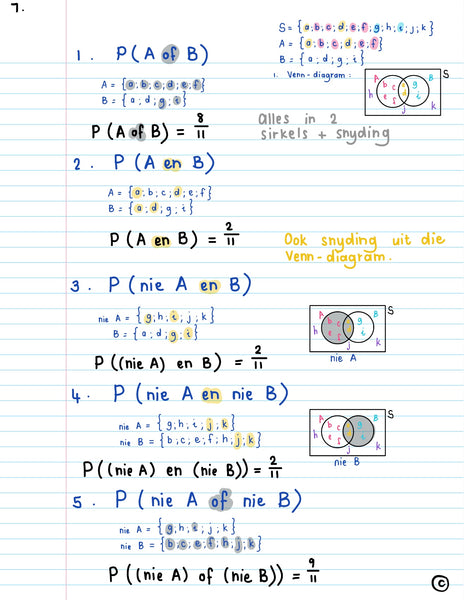 7.
S = {a;b;c;d;e;f;g;h;i;j;k}
A = {a;b;c;d;e;f}
B = {a;d;g;i}
1. Venn-diagram:
A B S
b c a g
e f d i
h j k
1. P(A of B)
A = {a;b;c;d;e;f}
B = {a;d;g;i}
P(A of B) = 8/11
Alles in 2
sirkels + snyding
2. P(A en B)
A = {a;b;c;d;e;f}
B = {a;d;g;i}
P(A en B) = 2/11
Ook snyding uit die
Venn-diagram.
3. P(nie A en B)
nie A = {g;h;i;j;k}
B = {a;d;g;i}
P((nie A) en B) = 2/11
A B S
b c a g
e f d i
h j k
nie A
4. P(nie A en nie B)
nie A = {g;h;i;j;k}
nie B = {b;c;e;f;h;j;k}
P((nie A) en (nie B)) = 2/11
A B S
b c a g
e f d i
h j k
nie B
5. P(nie A of nie B)
nie A = {g;h;i;j;k}
nie B = {b;c;e;f;h;j;k}
P((nie A) of (nie B)) = 9/11
©